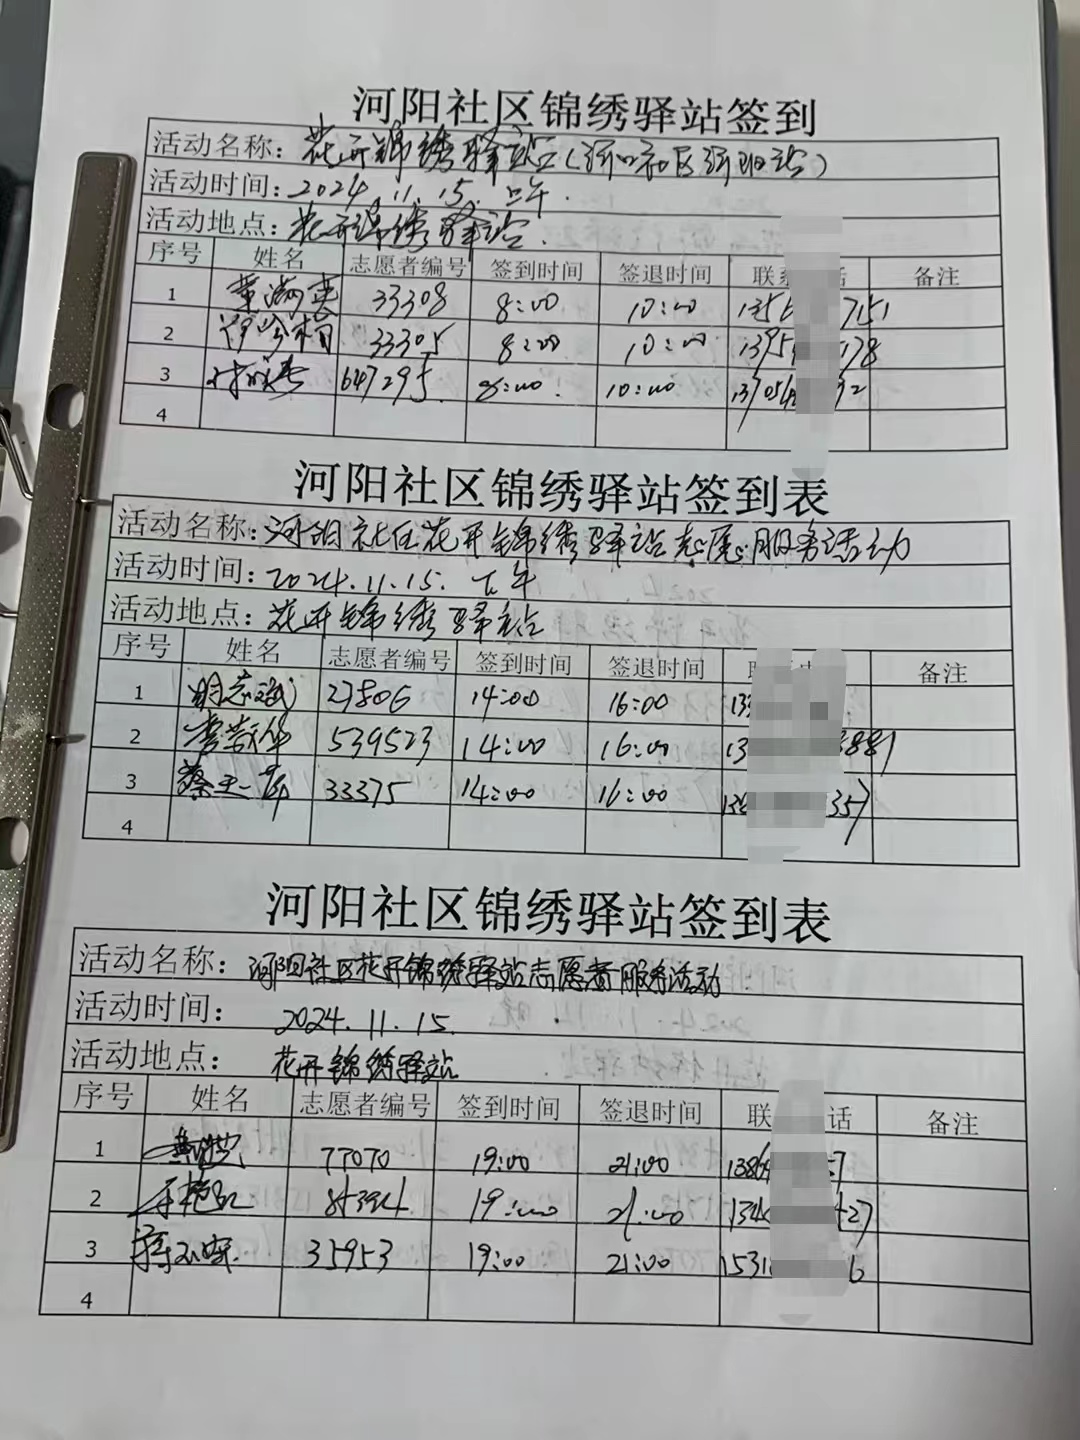 河阳社区锦绣驿站签到
活动名称：花开锦绣驿站（河阳社区河阳站）
活动时间：2024.11.15.上午.
活动地点：花开锦绣驿站.
序号 姓名 志愿者编号 签到时间 签退时间 联系 话 备注
1 33308 8:00 10:00 1356 7151
2 伊 33305 8:00 10:00 1395 178
3 647295. 8:00. 10:00 137054 92
4
河阳社区锦绣驿站签到表
活动名称：河阳社区花开锦绣驿站志愿服务活动
活动时间：2024.11.15.下午
活动地点：花开锦绣驿站
序号 姓名 志愿者编号 签到时间 签退时间 备注
1 明志斌 27806 14:00 16:00 133
2 华 539523 14:00 16:00 13 3881
3 蔡 33375 14:00 16:00 136 357
4
河阳社区锦绣驿站签到表
活动名称：河阳社区花开锦绣驿站志愿者服务活动
活动时间：2024.11.15.
活动地点：花开锦绣驿站
序号 姓名 志愿者编号 签到时间 签退时间 联 话 备注
1 77070 19:00 21:00 1386 7
2 19:00 21:00 134 27
3 35953 19:00 21:00 1531 6
4